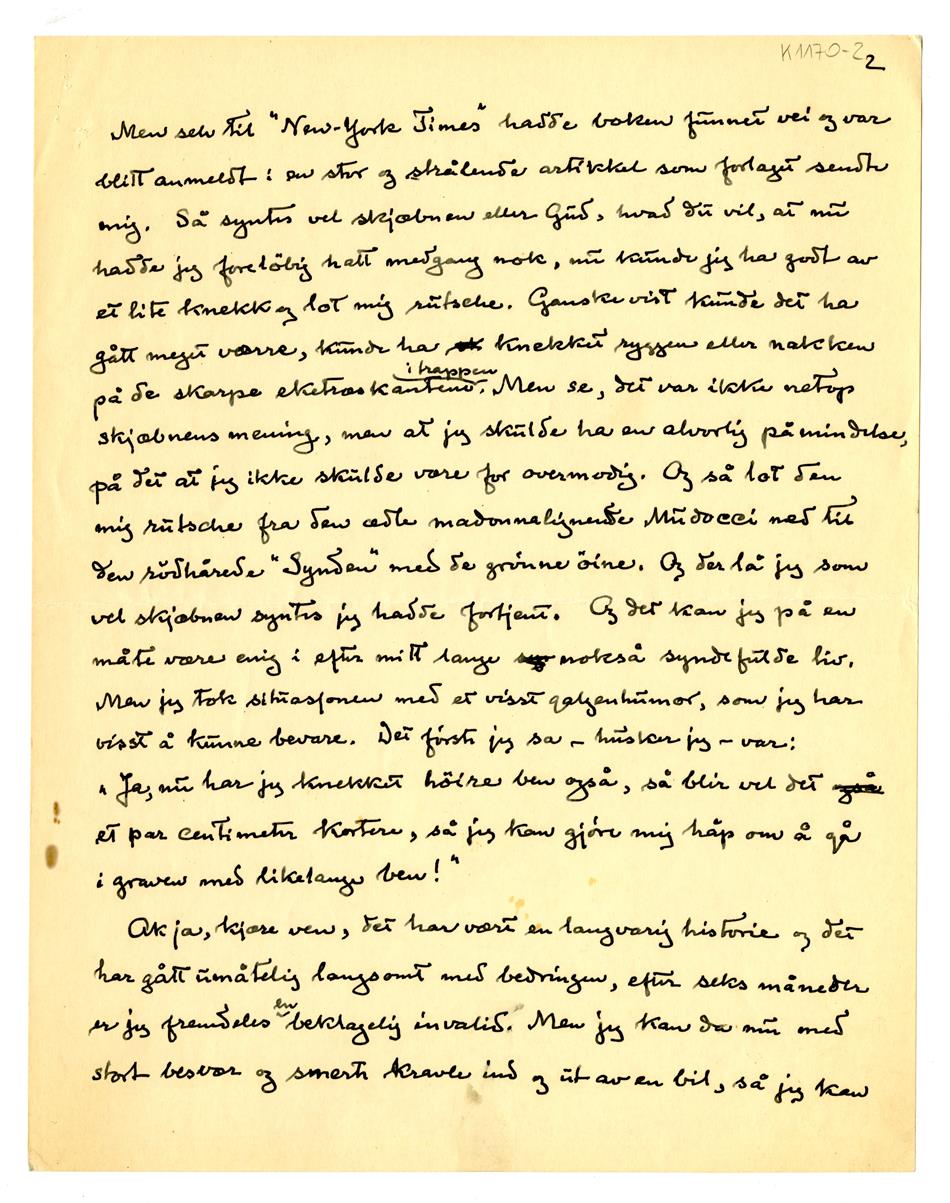 K1170-2
2
Men selv til "New-York Times" hadde boken funnet vei og var
blitt anmeldt i en stor og strålende artikkel som forlaget sendte
mig. Så syntes vel skjæbnen eller Gud, hvad du vil, at nu
hadde jeg foreløbig hatt medgang nok, nu kunde jeg ha godt av
et lite knekk og lot mig rutsche. Ganske vist kunde det ha
gått meget værre, kunde ha knekket ryggen eller nakken
i trappen
på de skarpe eketræskantene. Men se, det var ikke netop
skjæbnens mening, men at jeg skulde ha en alvorlig påmindelse,
på det at jeg ikke skulde være for overmodig. Og så lot den
mig rutsche fra den ædle madonnalignende Mudocci ned til
den rødhårede "Synden" med de grönne öine. Og der lå jeg som
vel skjæbnen syntes jeg hadde fortjent. Og det kan jeg på en
måte være enig i efter mitt lange nokså syndefulde liv.
Men jeg tok situasjonen med et visst galgenhumor, som jeg har
visst å kunne bevare. Det förste jeg sa – husker jeg – var:
"Ja, nu har jeg knekket höire ben også, så blir vel det også
et par centimeter kortere, så jeg kan gjöre mig håp om å gå
i graven med likelange ben!"
Ak ja, kjære ven, det har vært en langvarig historie og det
har gått umåtelig langsomt med bedringen, efter seks måneder
er jeg fremdeles en beklagelig invalid. Men jeg kan da nu med
stort besvær og smerte kravle ind og ut av en bil, så jeg kan